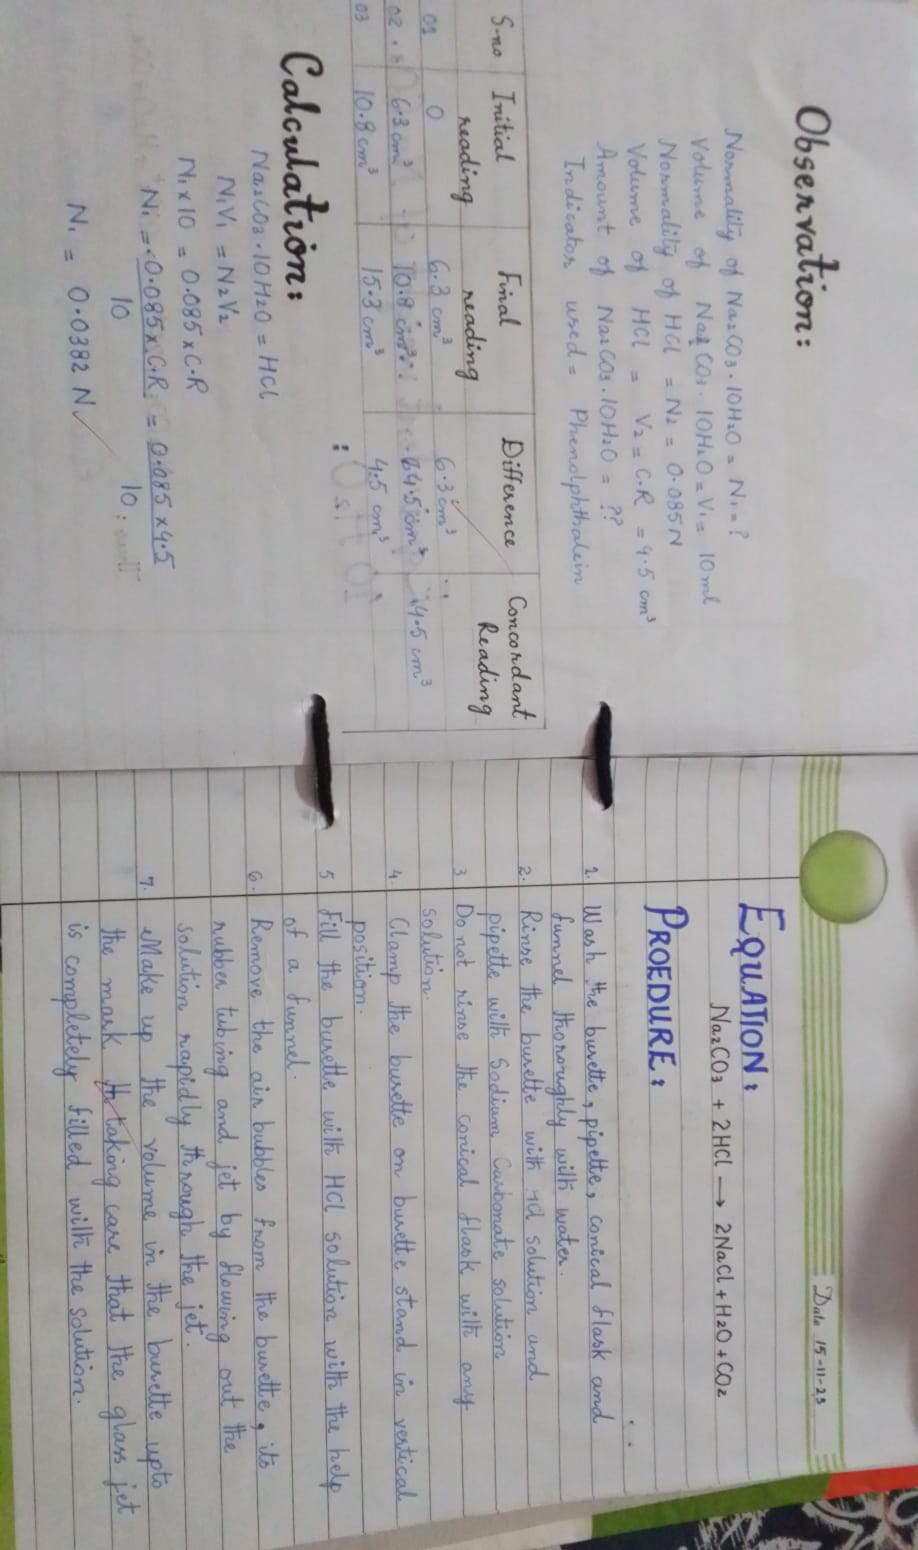 Observation:
Normality of Na2CO3.10H2O = N1 = ?
Volume of Na2CO3.10H2O = V1 = 10ml
Normality of HCl = N2 = 0.085N
Volume of HCl = V2 = C.R = 4.5 cm³
Amount of Na2CO3.10H2O = ??
Indicator used = Phenolphthalein
S.no Initial reading Final reading Difference Concordant Reading
01 0 6.3 cm³ 6.3 cm³
02 6.3 cm³ 10.8 cm³ 4.5 cm³ 4.5 cm³
03 10.8 cm³ 15.3 cm³ 4.5 cm³
Calculation:
Na2CO3.10H2O = HCl
N1V1 = N2V2
N1 x 10 = 0.085 x C.R
N1 = 0.085 x C.R / 10 = 0.085 x 4.5 / 10
N1 = 0.0382 N
Date 15-11-23
EQUATION:
Na2CO3 + 2HCl → 2NaCl + H2O + CO2
PROEDURE:
1. Wash the burette, pipette, conical flask and
funnel thoroughly with water.
2. Rinse the burette with HCl solution and
pipette with Sodium Carbonate solution
3 Do not rinse the conical flask with any
solution.
4. Clamp the burette on burette stand in vertical
position.
5 Fill the burette with HCl solution with the help
of a funnel.
6. Remove the air bubbles from the burette, its
rubber tubing and jet by flowing out the
solution rapidly through the jet.
7. Make up the volume in the burette upto
the mark taking care that the glass jet
is completely filled with the solution.